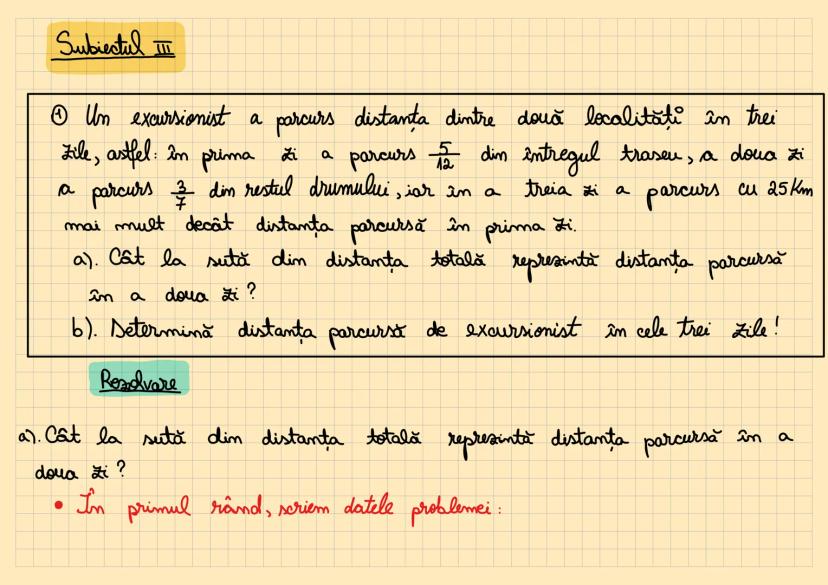 Subiectul III
① Un excursionist a parcurs distanța dintre două localități în trei
zile, astfel: în prima zi a parcurs 5/12 din întregul traseu, a doua zi
a parcurs 3/7 din restul drumului, iar în a treia zi a parcurs cu 25 Km
mai mult decât distanța parcursă în prima zi.
a). Cât la sută din distanța totală reprezintă distanța parcursă
în a doua zi?
b). Determină distanța parcursă de excursionist în cele trei zile!
Rezolvare
a). Cât la sută din distanța totală reprezintă distanța parcursă în a
doua zi?
• În primul rând, scriem datele problemei: